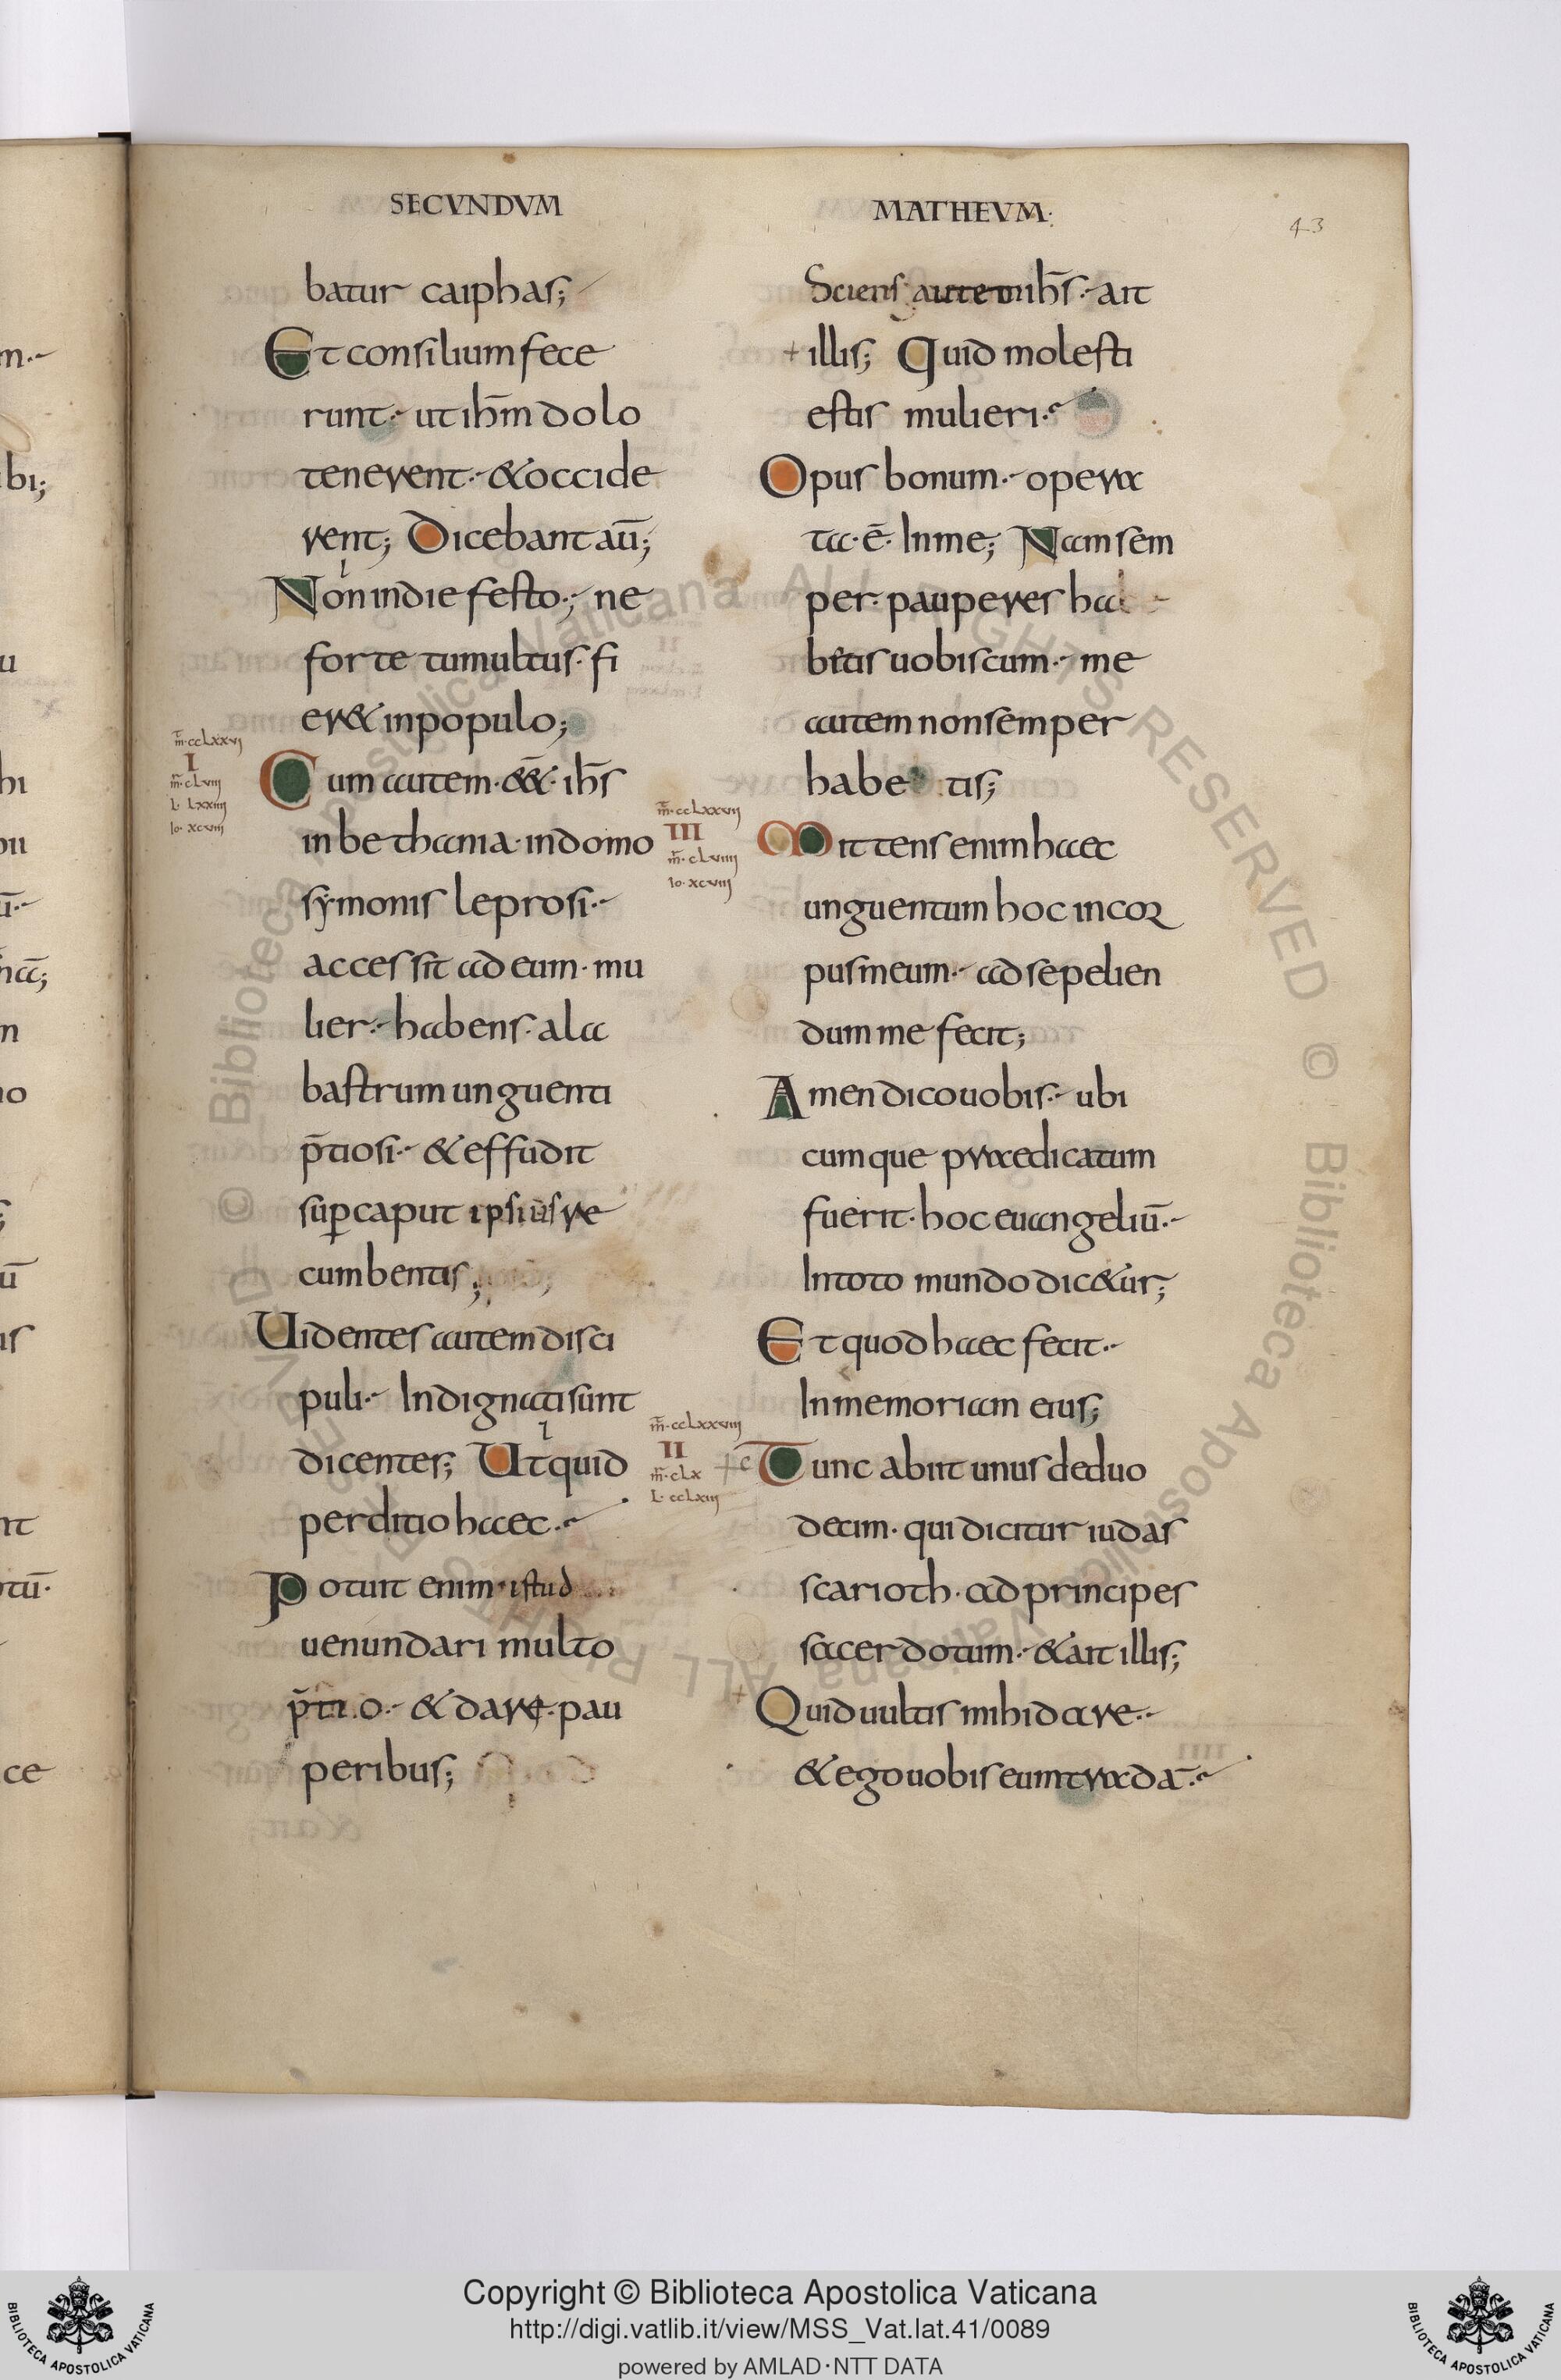 SECVNDVM
batur caiphas;
Et consilium fece
runt·- ut ihm̄ dolo
tenerent·- & occide
rent; Dicebant aū;
Non in die festo·;- ne
forte tumultus· fi
er& in populo;
m̄·ccLxxvj
I
m̄·cLviij
L· Lxxiiij
Io· xcviij
Cum autem· ēē&· ihs̄
in bethania· in domo
symonis leprosi·-
accessit ad eum· mu
lier·- habens· ala
bastrum unguenti
p̄tiosi·- & effudit
sup caput ipsius re
cumbentis;
Uidentes autem disci
puli·- Indignati sunt
dicentes; Ut quid
perditio haec·-
Potuit enim· istud
uenundari multo
p̄tio·- & dare· pau
peribus;
MATHEVM·
43
Sciens autem ihs̄·- ait
+ illis; Quid molesti
estis mulieri·-
Opus bonum·- opera
ta· ē· In me; Nam sem
per· pauperes ha
betis uobiscum·- me
autem non semper
habe tis;
m̄·ccLxxvij
III
m̄·cLviiij
Io· xcviij
Mittens enim haec
unguentum hoc in cor
pus meum·- ad sepelien
dum me fecit;
Amen dico uobis·- ubi
cumque praedicatum
fuerit· hoc euangeliū·-
In toto mundo dic&ur;
Et quod haec fecit·-
In memoriam eius;
m̄·ccLxxviij
II
m̄·cLx
L· ccLxiij
Tunc abiit unus de duo
decim· qui dicitur iudas
scarioth· ad principes
sacerdotum·- & ait illis;
Quid uultis mihi dare·-
& ego uobis eum tradā·-
© Biblioteca Apostolica Vaticana ALL RIGHTS RESERVED © Biblioteca Apostolica Vaticana ALL RIGHTS RESERVED
Copyright © Biblioteca Apostolica Vaticana
http://digi.vatlib.it/view/MSS_Vat.lat.41/0089
powered by AMLAD·NTT DATA
BIBLIOTECA APOSTOLICA VATICANA
BIBLIOTECA APOSTOLICA VATICANA